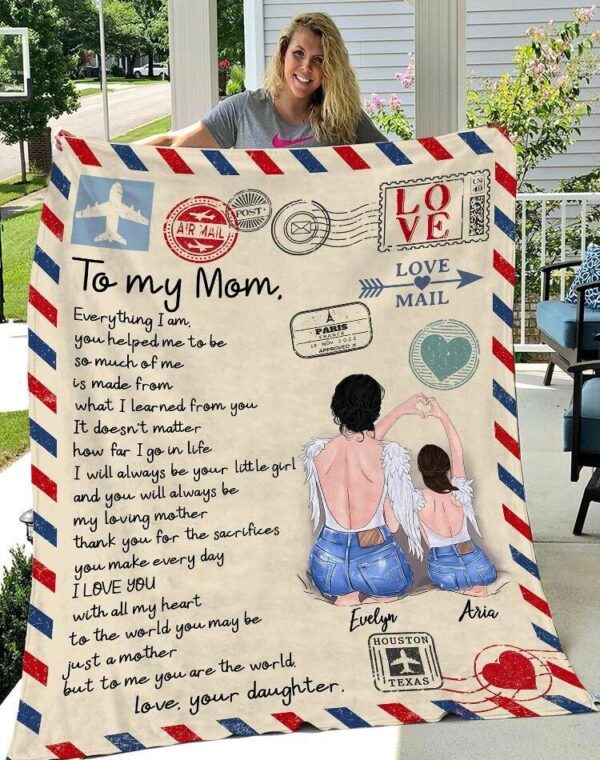 AIR MAIL
POST
LOVE
To my Mom,
LOVE
MAIL
Everything I am,
you helped me to be
so much of me
is made from
what I learned from you
It doesn't matter
how far I go in life
I will always be your little girl
and you will always be
my loving mother
thank you for the sacrifices
you make every day
I LOVE YOU
with all my heart
to the world you may be
just a mother
but to me you are the world.
love, your daughter.
PARIS
FRANCE
19 NOV 2022
APPROVED
Evelyn
Aria
HOUSTON
TEXAS